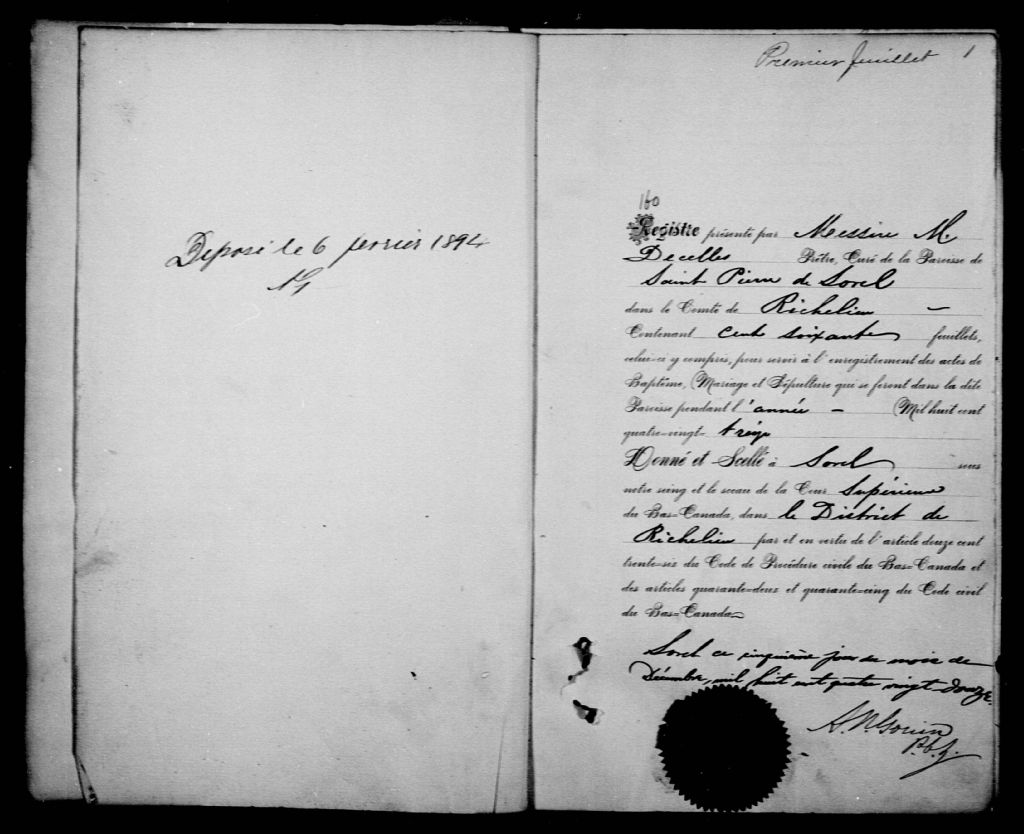 Déposé le 6 fevrier 1894
Premier feuillet 1
160
Registre présenté par Messire M.
Decelles Prêtre, Curé de la Paroisse de
Saint Pierre de Sorel
dans le Comté de Richelieu –
Contenant cent soixante feuillets,
celui-ci y compris, pour servir à l'enregistrement des actes de
Baptême, Mariage et Sépulture qui se feront dans la dite
Paroisse pendant l'année – Mil huit cent
quatre-vingt- treize
Donné et Scellé à Sorel sous
notre seing et le sceau de la Cour Supérieure
du Bas-Canada, dans le District de
Richelieu par et en vertu de l'article douze cent
trente-six du Code de Procédure civile du Bas-Canada et
des articles quarante-deux et quarante-cinq du Code civil
du Bas-Canada
Sorel ce cinquième jour du mois de
Décembre, mil huit cent quatre vingt-douze.
A. N. Gouin